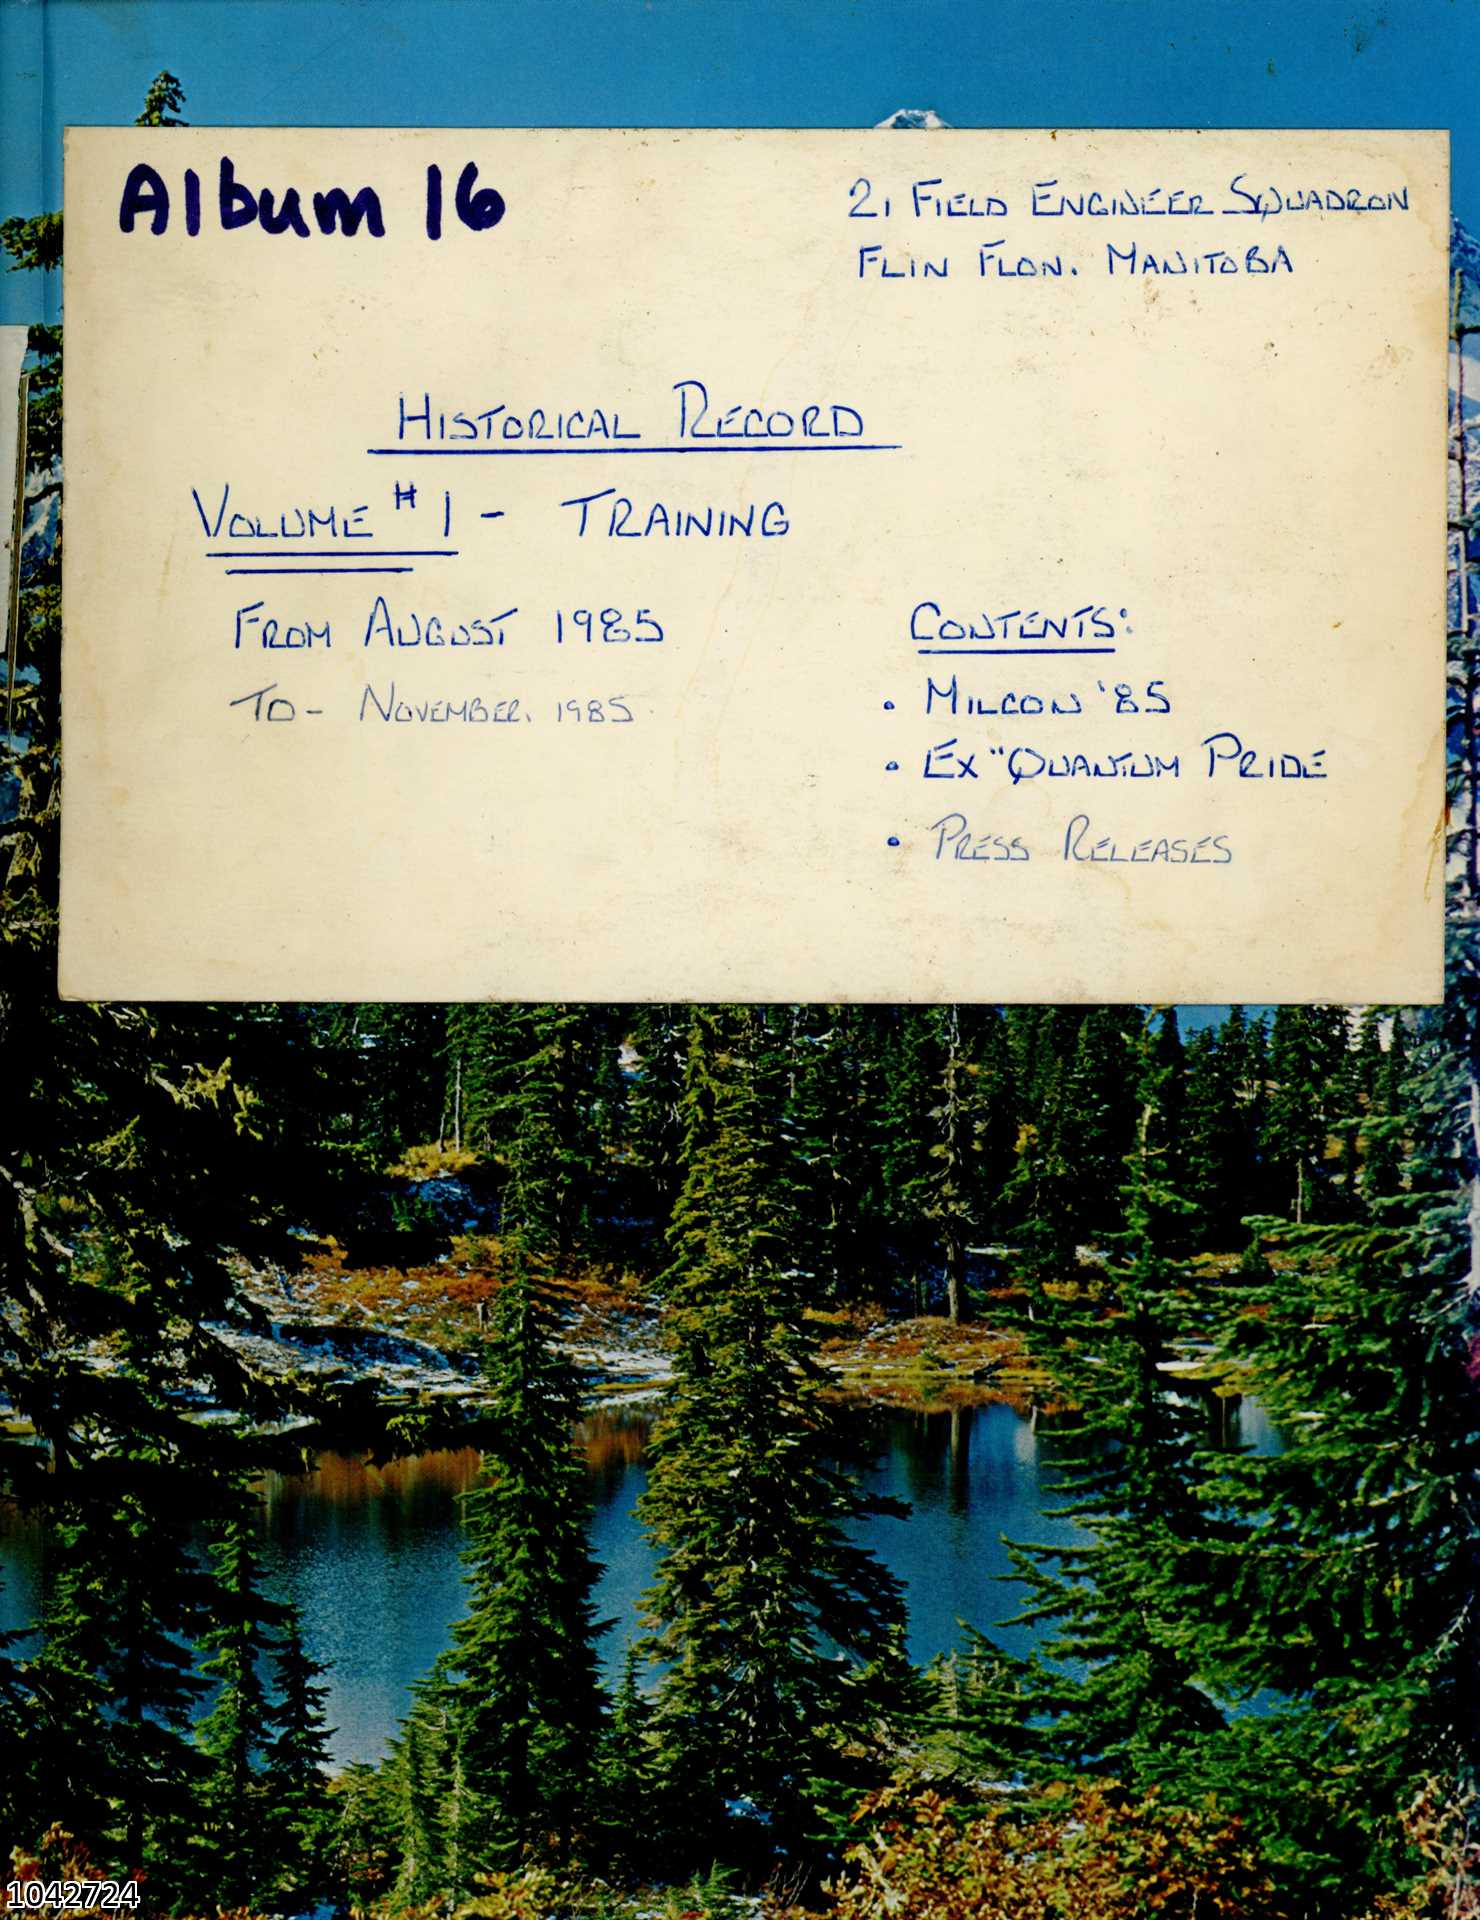 Album 16
21 FIELD ENGINEER SQUADRON
FLIN FLON. MANITOBA
HISTORICAL RECORD
VOLUME #1 - TRAINING
FROM AUGUST 1985
TO - NOVEMBER. 1985.
CONTENTS:
• MILCON '85
• EX "QUANTUM PRIDE
• PRESS RELEASES
1042724